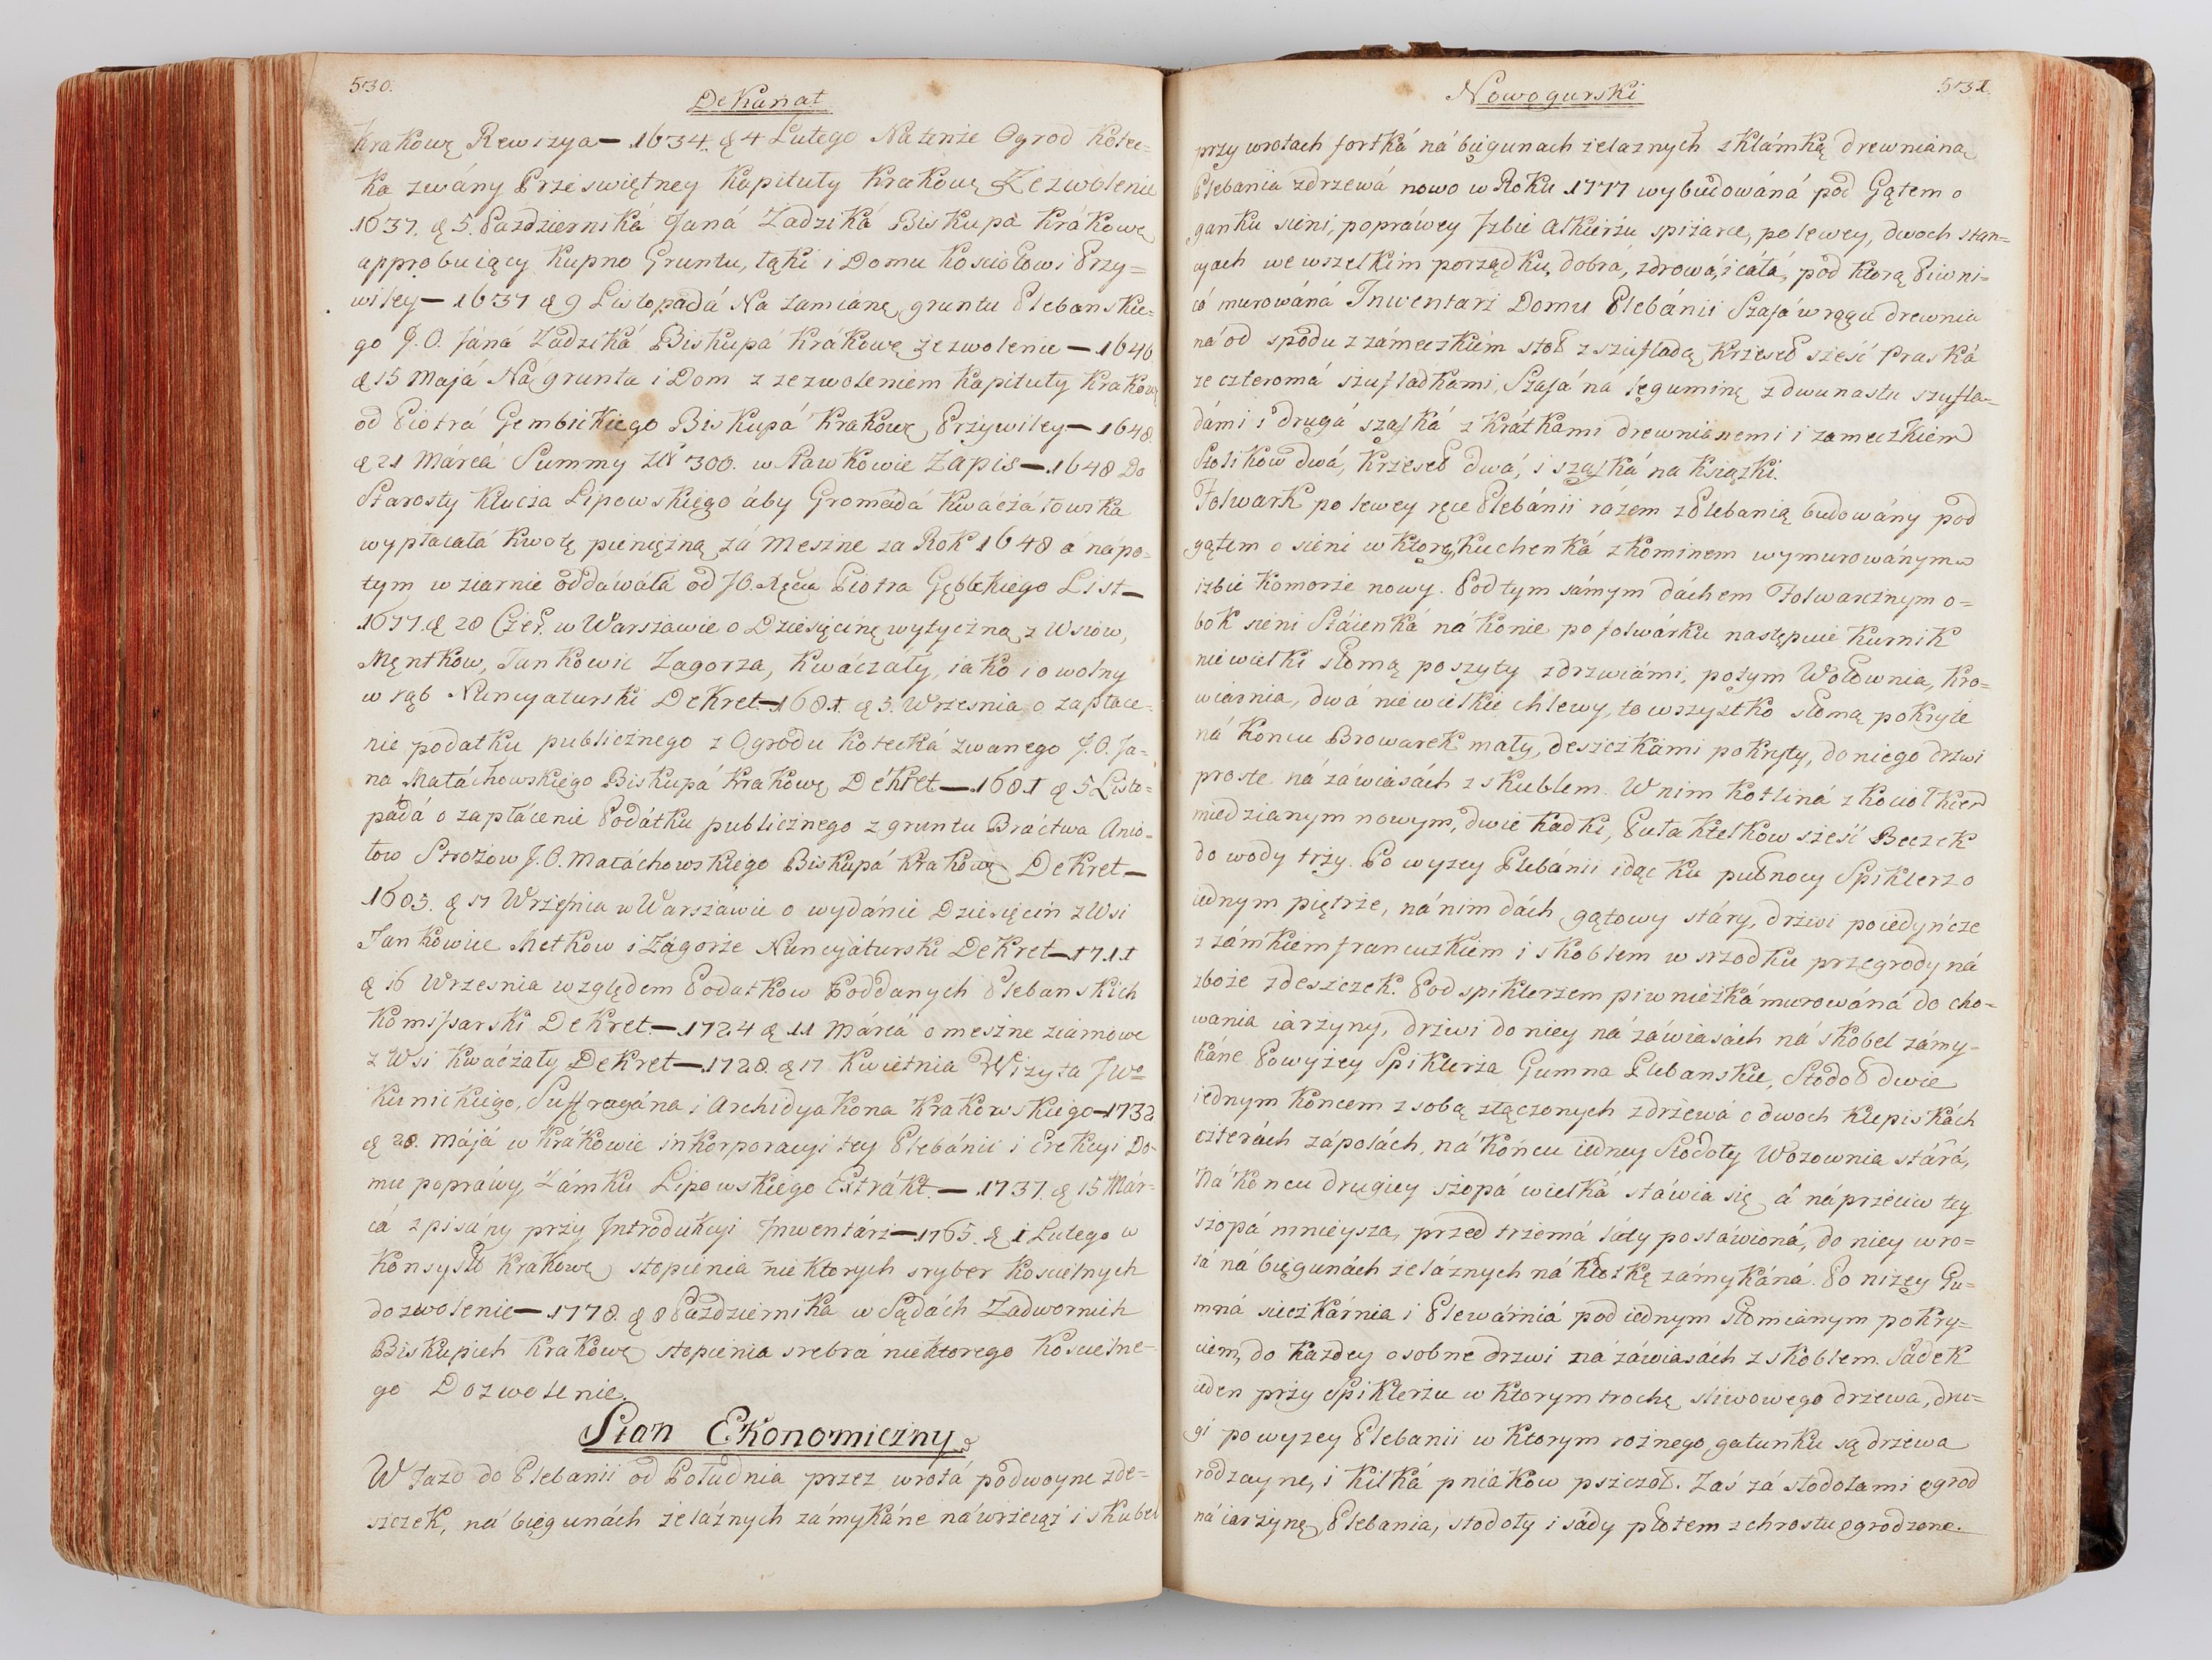 530.
Dekanat
Krakowę Rewizya — 1634. ą 4 Lutego Na tenże Ogrod Kotec=
ka zwány Przeświętney Kapituły Krakowę Zezwolenie
1637. ą 5. Pazdzierniká Janá Zadziká Biskupá Krákowę
approbuiący Kupno Gruntu, łąki i Domu Kościołowi Przy=
wiley — 1637 ą 9 Listopadá Na zamianę gruntu Plebanskie=
go J. O. Jáná Zadziká Biskupá Krákowę zezwolenie — 1646
ą 15 Majá Ná grunta i Dom z zezwoleniem Kapituły Krakowę
od Piotrá Gembickiego Biskupá Krakowę Przywiley — 1648.
ą 21 Márca Summy Zł 300. w Sławkowie Zapis — 1648 Do
Starosty Klucza Lipowskiego áby Gromádá Kwaczáłowska
wypłacałá kwotę pieniężną zá Meszne za Rok 1648 á nápo=
tym w ziarnie oddáwáłá od JO. Xcia Piotra Gębickiego List —
1677. ą 28 Czer. w Warszawie o Dziesięcinę wytyczną z Wsiow,
Mętkow, Jankowic Zagorza, Kwáczały, iako i o wolny
w rąb Nuncyaturski Dekret — 1681. ą 3. Wrzesnia o zapłace=
nie podatku publicznego z Ogrodu Koteká zwanego J. O. Ja=
na Małáchowskiego Biskupá Krakowę Dekret — 1681 ą 5 Listo=
pádá o zapłácenie Podátku publicznego z gruntu Bráctwa Anio=
łow Strożow J. O. Małáchowskiego Biskupá Krakowę Dekret —
1683. ą 17 Września w Warszawie o wydánie Dziesięcin z Wsi
Jankowice Metkow i Zágorze Nuncyáturski Dekret — 1711
ą 16 Wrzesnia względem Podatkow Poddanych Plebanskich
Komissarski Dekret. — 1724 ą 11 Márcá o meszne ziarnowe
z Wsi Kwáczały Dekret — 1728. ą 17 Kwietnia Wizyta JWo
Kunickiego, Suffragána i Archidyakona Krakowskiego — 1732
ą 28. Májá w Krákowie inkorporacyi tey Plebánii i Erekcyi Do=
mu popráwy, Zámku Lipowskiego Extrákt. — 1737. ą 15 Már=
cá zpisány przy Introdukcyi Inwentárz — 1765. ą 1 Lutego w
Konsyst Krakowę stopienia niektorych sryber Koscielnych
dozwolenie — 1778. ą 8 Pazdziernika w Sądách Zadwornich
Biskupich Krakowę stopienia srebrá niektorego Kościelne=
go Dozwolenie.
Stan Ekonomiczny
W Jazd do Plebanii od Południa przez wrotá podwoyne z de=
szczek, ná biegunách żeláznych zámykáne ná wrzeciąz i skubel
Nowogurski
531.
przy wrotach fortká ná biegunach żelaznych z klámką drewnianą
Plebania z drzewá nowo w Roku 1777 wybudowáná pod Gątem o
ganku sieni, popráwey Jzbie alkierzu spiżarce, po lewey, dwoch stan=
cyach we wszelkim porządku dobrá, zdrowá, i cáłá, pod ktorą Piwni=
cá murowáná Inwentarz Domu Plebánii Szafá w rogu drewnia
ná od spodu z zámeczkiem stoł z szufladą krzeseł sześć Praská
ze czteromá szufladkami, Szafá na leguminę z dwunastu szufla=
dámi i drugá szafká z krátkami drewnianemi i zameczkiem
Stolikow dwá, Krzeseł dwá, i szafká na Książki.
Folwark po lewey ręce Plebánii rázem z Plebanią budowány pod
gątem o sieni w ktorey Kuchenká z kominem wymurowánym o
izbie komorze nowy. Pod tym sámym dáchem Folwarcznym o=
bok sieni Stáienká ná konie po folwárku następuie Kurnik
niewielki słomą poszyty z drzwiámi, potym Wołownia, Kro=
wiarnia, dwá niewielkie chlewy, to wszystko słomą pokryte
ná końcu Browarek mały, deszczkámi pokryty, do niego drzwi
proste ná záwiasách z skublem. W nim kotliná z kociołkiem
miedzianym nowym, dwie kadki, Pułaktelkow sześć Beczek
do wody trzy. Powyżey Plebánii idąc ku pułnocy Spiklerz o
iednym piętrze, ná nim dách gątowy stáry, drzwi poiedyńcze
z zámkiem francuzkiem i skoblem w srzodku przegrody ná
zboże z deszczek. Pod spiklerzem piwniczká murowáná do cho=
wania iarzyny, drzwi do niey ná záwiasách ná skobel zámy=
káne Powyżey Spiklerza Gumna Plebanskie, Stodoł dwie
iednym końcem z sobą złączonych z drzewá o dwoch klepiskách
czterách zápolách, ná końcu iedney Stodoły Wozownia stárá,
Ná końcu drugiey szopá wielká stáwia się á náprzeciw tey
szopá mnieysza, przed trzemá láty postáwioná, do niey wro=
tá ná biegunách żeláznych ná kłotkę zámykáná. Poniżey Gu=
mná sieczkárnia i Plewárniá pod iednym słomianym pokry=
ciem, do każdey osobne drzwi ná záwiasách z skoblem. Sadek
ieden przy Spiklerzu w ktorym trochę sliwowego drzewa, dru=
gi powyżey Plebanii w ktorym rożnego gatunku są drzewa
rodzayne, i kilká pniákow pszczoł. Zaś zá stodołami ogrod
ná iarzynę Plebania, stodoły i sády płotem z chrostu ogrodzone.